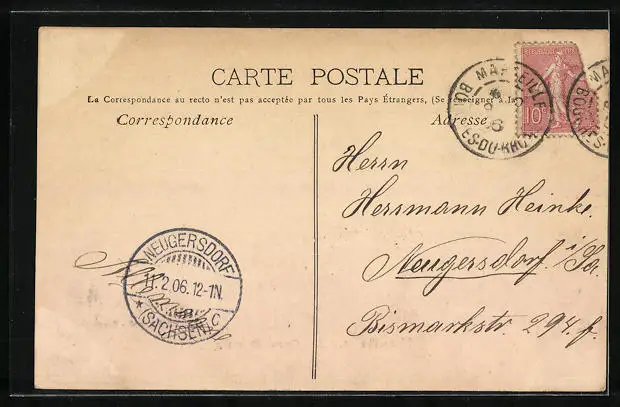 CARTE POSTALE
La Correspondance au recto n'est pas acceptée par tous les Pays Étrangers, (Se renseigner à la
Correspondance
Adresse
MARSEILLE
BOUCHES-DU-RHONE
10c
Herrn
Herrmann Heinke.
Neugersdorf i/Sa.
Bismarkstr. 294. f.
NEUGERSDORF
11.2.06.12-1N.
* (SACHSEN) c